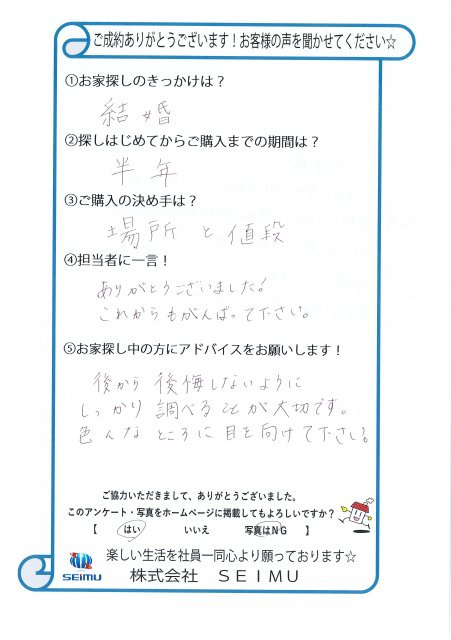 ご成約ありがとうございます！お客様の声を聞かせてください☆
①お家探しのきっかけは？
結婚
②探しはじめてからご購入までの期間は？
半年
③ご購入の決め手は？
場所と値段
④担当者に一言！
ありがとうございました！
これからもがんばって下さい。
⑤お家探し中の方にアドバイスをお願いします！
後から後悔しないように
しっかり調べることが大切です。
色んなところに目を向けて下さい。
ご協力いただきまして、ありがとうございました。
このアンケート・写真をホームページに掲載してもよろしいですか？
【 はい いいえ 写真はNG 】
楽しい生活を社員一同心より願っております☆
SEIMU 株式会社 SEIMU